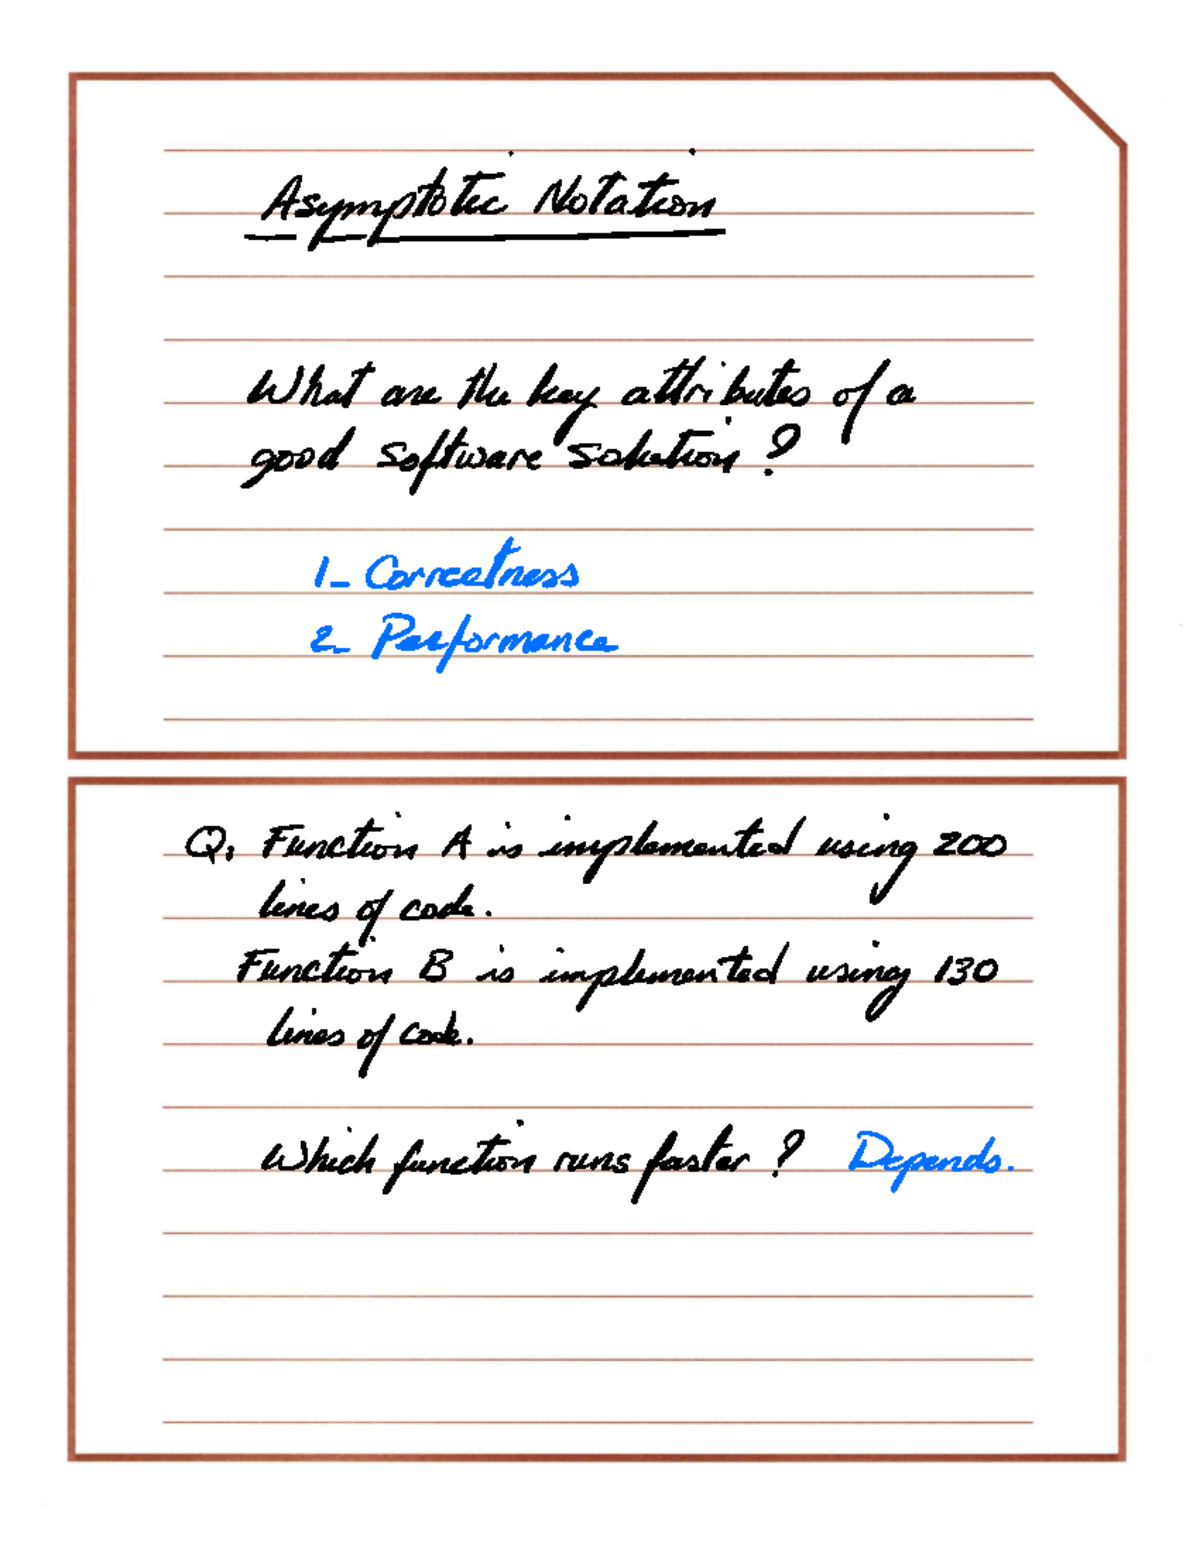 Asymptotic Notation
What are the key attributes of a
good software solution?
1- Correctness
2- Performance
Q. Function A is implemented using 200
lines of code.
Function B is implemented using 130
lines of code.
Which function runs faster? Depends.